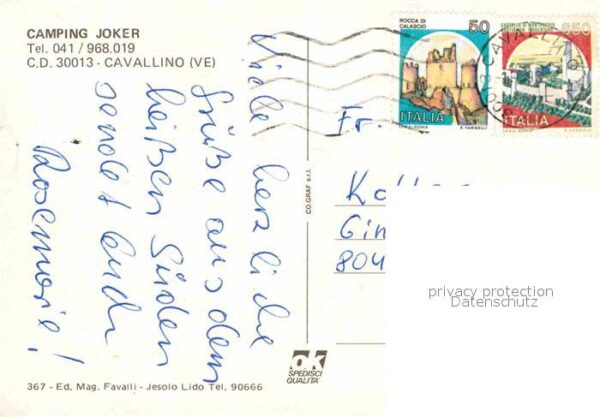 CAMPING JOKER
Tel. 041 / 968.019
C.D. 30013 - CAVALLINO (VE)
Viele herzliche
Grüße aus dem
heißen Süden
sendet euch
Rosemarie!
CO.GRAF s.r.l.
ok
SPEDISCI
QUALITA'
367 - Ed. Mag. Favalli - Jesolo Lido Tel. 90666
ROCCA DI
CALASCIO
50
ITALIA
I.P.Z.S. ROMA
E. VANGELLI
650
ITALIA
CAVALLINO
Fr.
Gin
804
privacy protection
Datenschutz